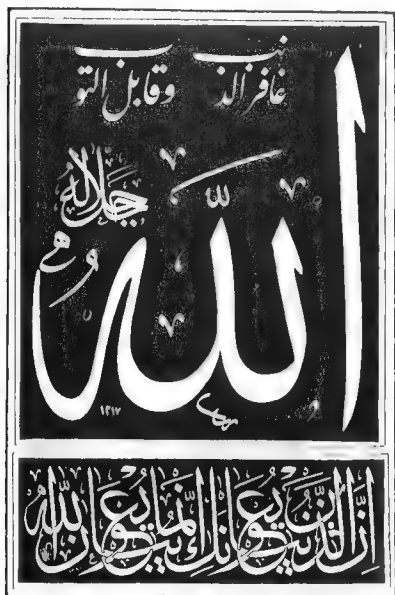 غافر الذنب وقابل التوب
الله
جل جلاله
١٢١٧
ان الذين يبايعونك انما يبايعون الله